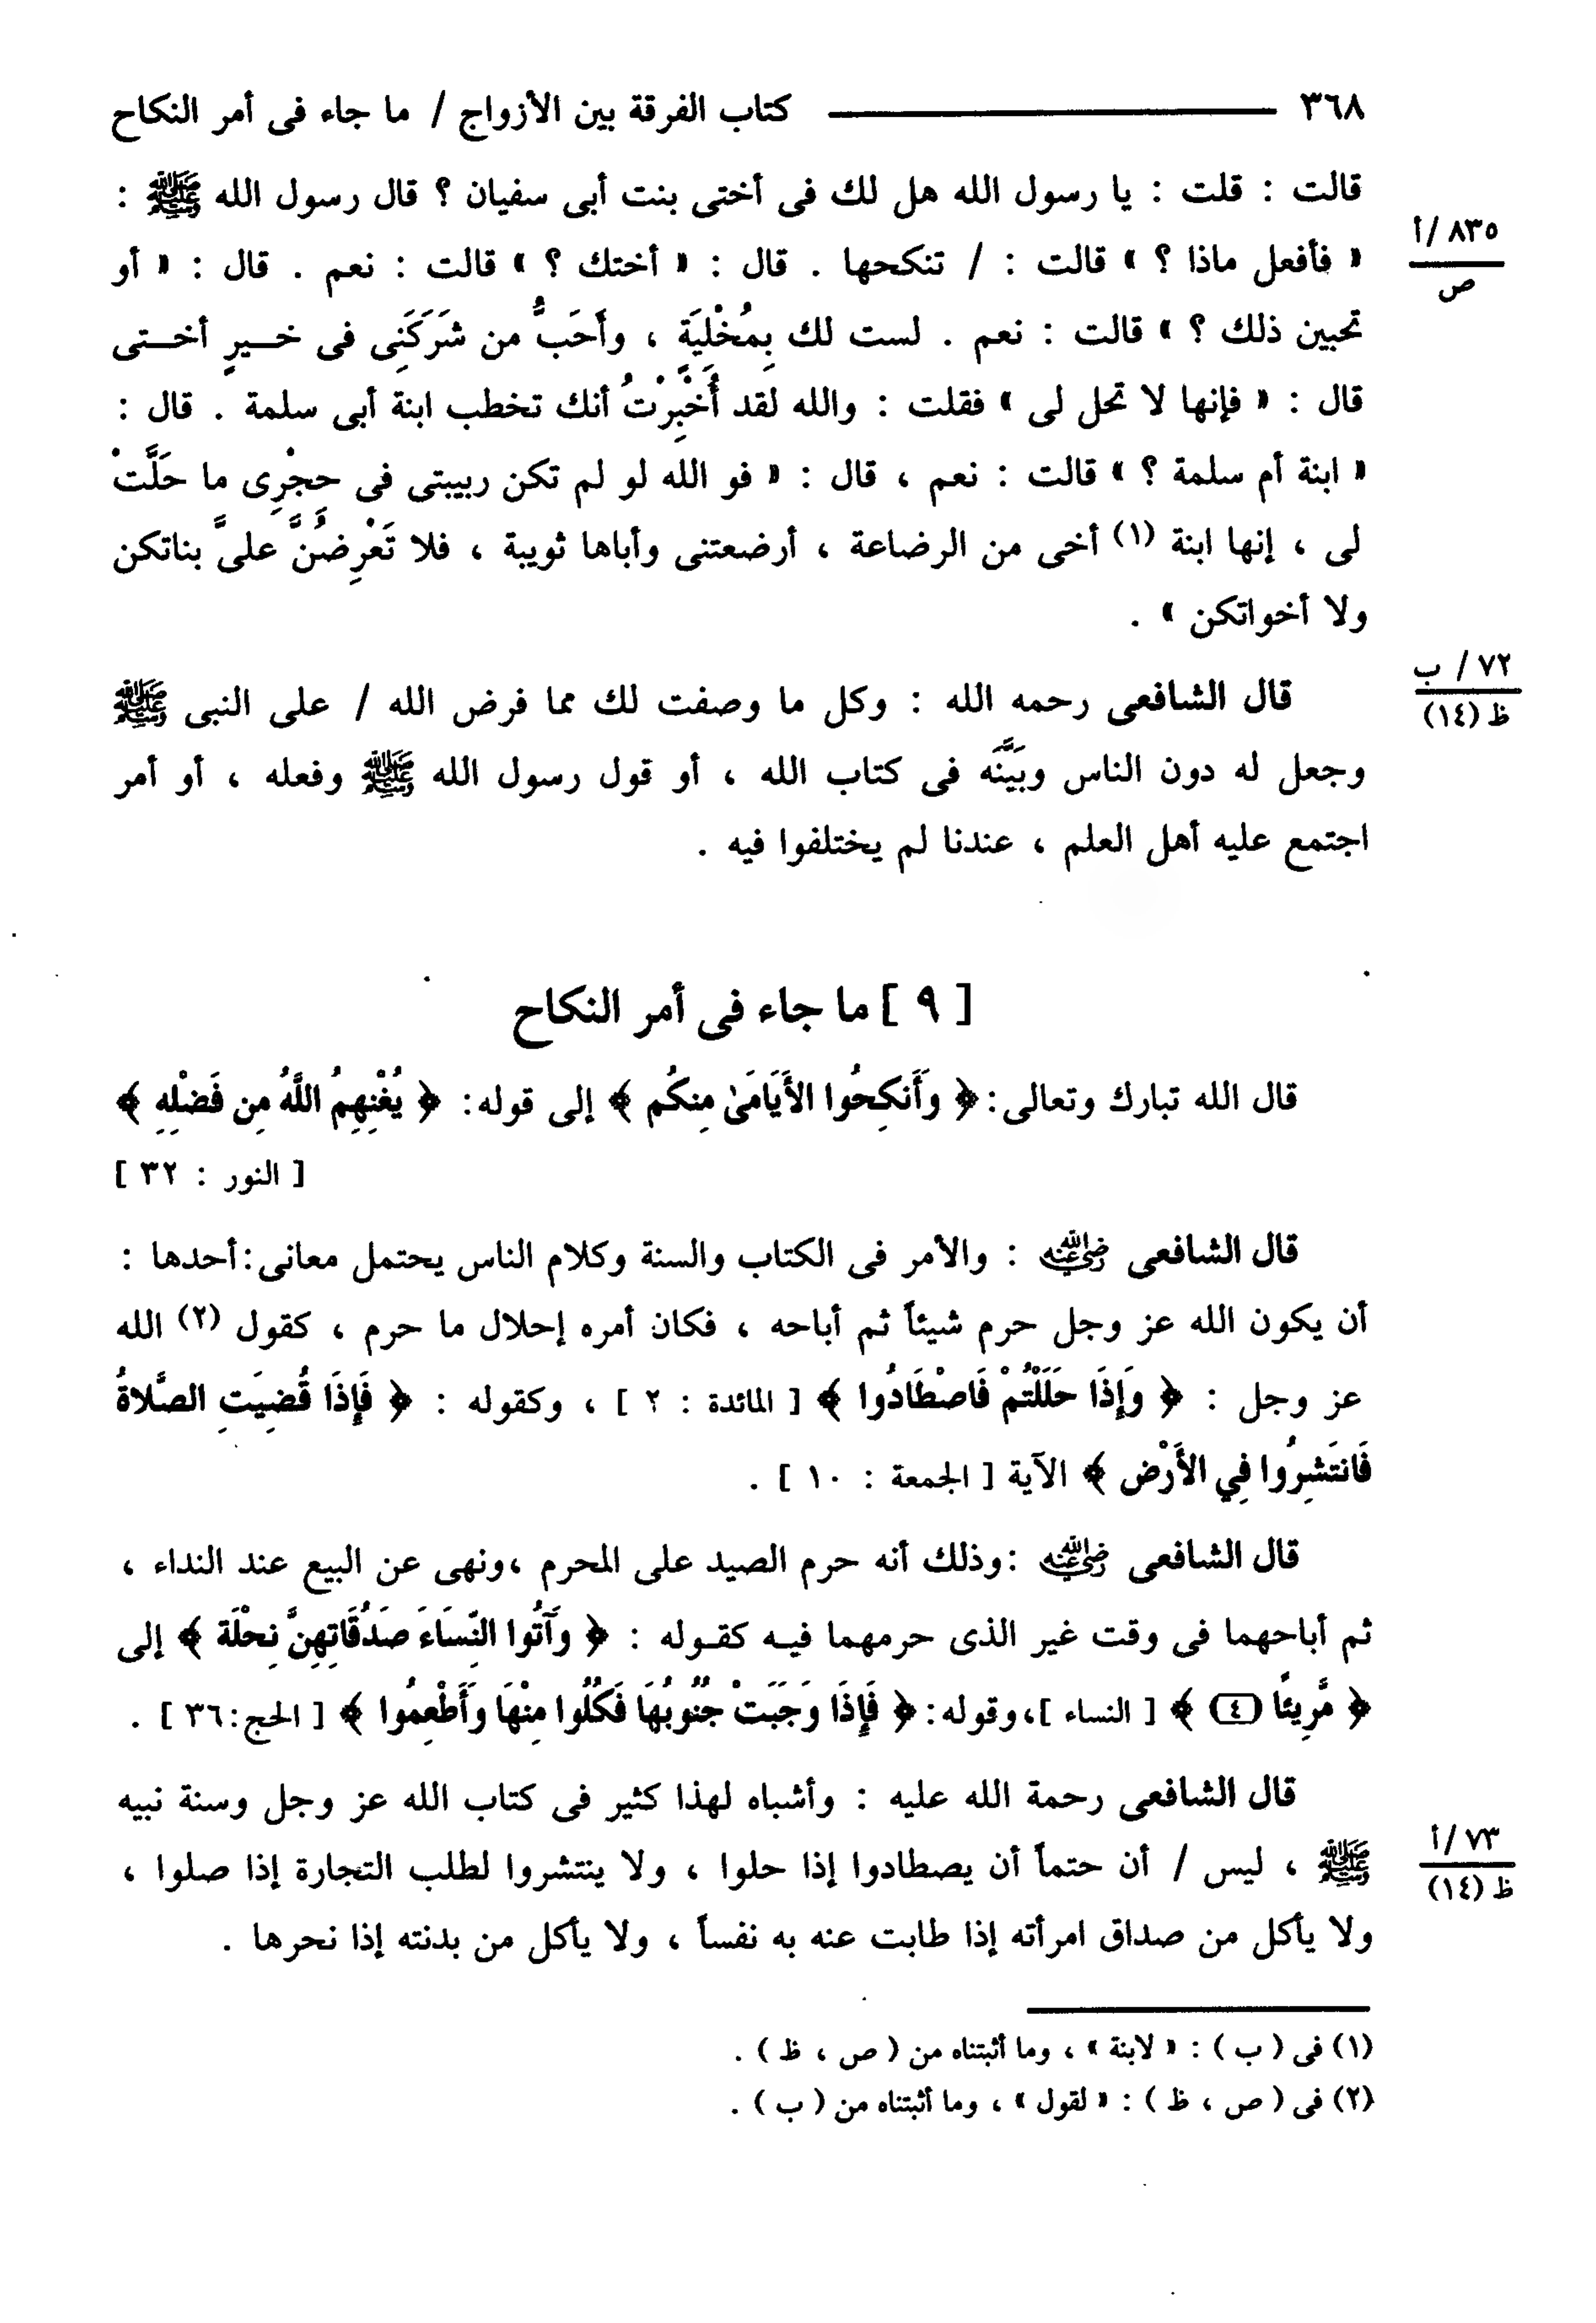 ٣٦٨ كتاب الفرقة بين الأزواج / ما جاء فى أمر النكاح
قالت : قلت : يا رسول الله هل لك فى أختى بنت أبى سفيان ؟ قال رسول الله ﷺ :
٨٣٥/أ
ص
« فأفعل ماذا ؟ » قالت : / تنكحها . قال : « أختك ؟ » قالت : نعم . قال : « أو
تحبين ذلك ؟ » قالت : نعم . لست لك بِمُخْلِيَةٍ ، وأَحَبُّ من شَرَكَنِى فى خــيرٍ أخــتى
قال : « فإنها لا تحل لى » فقلت : والله لقد أُخْبِرْتُ أنك تخطب ابنة أبى سلمة . قال :
« ابنة أم سلمة ؟ » قالت : نعم ، قال : « فو الله لو لم تكن ربيبتى فى حِجْرِى ما حَلَّتْ
لى ، إنها ابنة (١) أخى من الرضاعة ، أرضعتنى وأباها ثويبة ، فلا تَعْرِضُنَّ علىَّ بناتكن
ولا أخواتكن » .
٧٢ / ب
ظ (١٤)
قال الشافعى رحمه الله : وكل ما وصفت لك مما فرض الله / على النبى ﷺ
وجعل له دون الناس وبَيَّنَه فى كتاب الله ، أو قول رسول الله ﷺ وفعله ، أو أمر
اجتمع عليه أهل العلم ، عندنا لم يختلفوا فيه .
[ ٩ ] ما جاء فى أمر النكاح
قال الله تبارك وتعالى: ﴿ وَأَنكِحُوا الأَيَامَىٰ مِنكُم ﴾ إلى قوله: ﴿ يُغْنِهِمُ اللَّهُ مِن فَضْلِهِ ﴾
[ النور : ٣٢ ]
قال الشافعى رضي الله عنه : والأمر فى الكتاب والسنة وكلام الناس يحتمل معانى: أحدها :
أن يكون الله عز وجل حرم شيئاً ثم أباحه ، فكان أمره إحلال ما حرم ، كقول (٢) الله
عز وجل : ﴿ وَإِذَا حَلَلْتُمْ فَاصْطَادُوا ﴾ [ المائدة : ٢ ] ، وكقوله : ﴿ فَإِذَا قُضِيَتِ الصَّلاةُ
فَانتَشِرُوا فِي الأَرْضِ ﴾ الآية [ الجمعة : ١٠ ] .
قال الشافعى رضي الله عنه :وذلك أنه حرم الصيد على المحرم ،ونهى عن البيع عند النداء ،
ثم أباحهما فى وقت غير الذى حرمهما فيـه كقـوله : ﴿ وَآتُوا النِّسَاءَ صَدُقَاتِهِنَّ نِحْلَة ﴾ إلى
﴿ مَّرِيئًا (٤) ﴾ [ النساء ]،وقوله: ﴿ فَإِذَا وَجَبَتْ جُنُوبُهَا فَكُلُوا مِنْهَا وَأَطْعِمُوا ﴾ [ الحج:٣٦ ] .
قال الشافعى رحمة الله عليه : وأشباه لهذا كثير فى كتاب الله عز وجل وسنة نبيه
٧٣/أ
ظ (١٤)
ﷺ ، ليس / أن حتماً أن يصطادوا إذا حلوا ، ولا ينتشروا لطلب التجارة إذا صلوا ،
ولا يأكل من صداق امرأته إذا طابت عنه به نفساً ، ولا يأكل من بدنته إذا نحرها .
(١) فى ( ب ) : « لابنة » ، وما أثبتناه من ( ص ، ظ ) .
(٢) فى ( ص ، ظ ) : « لقول » ، وما أثبتناه من ( ب ) .